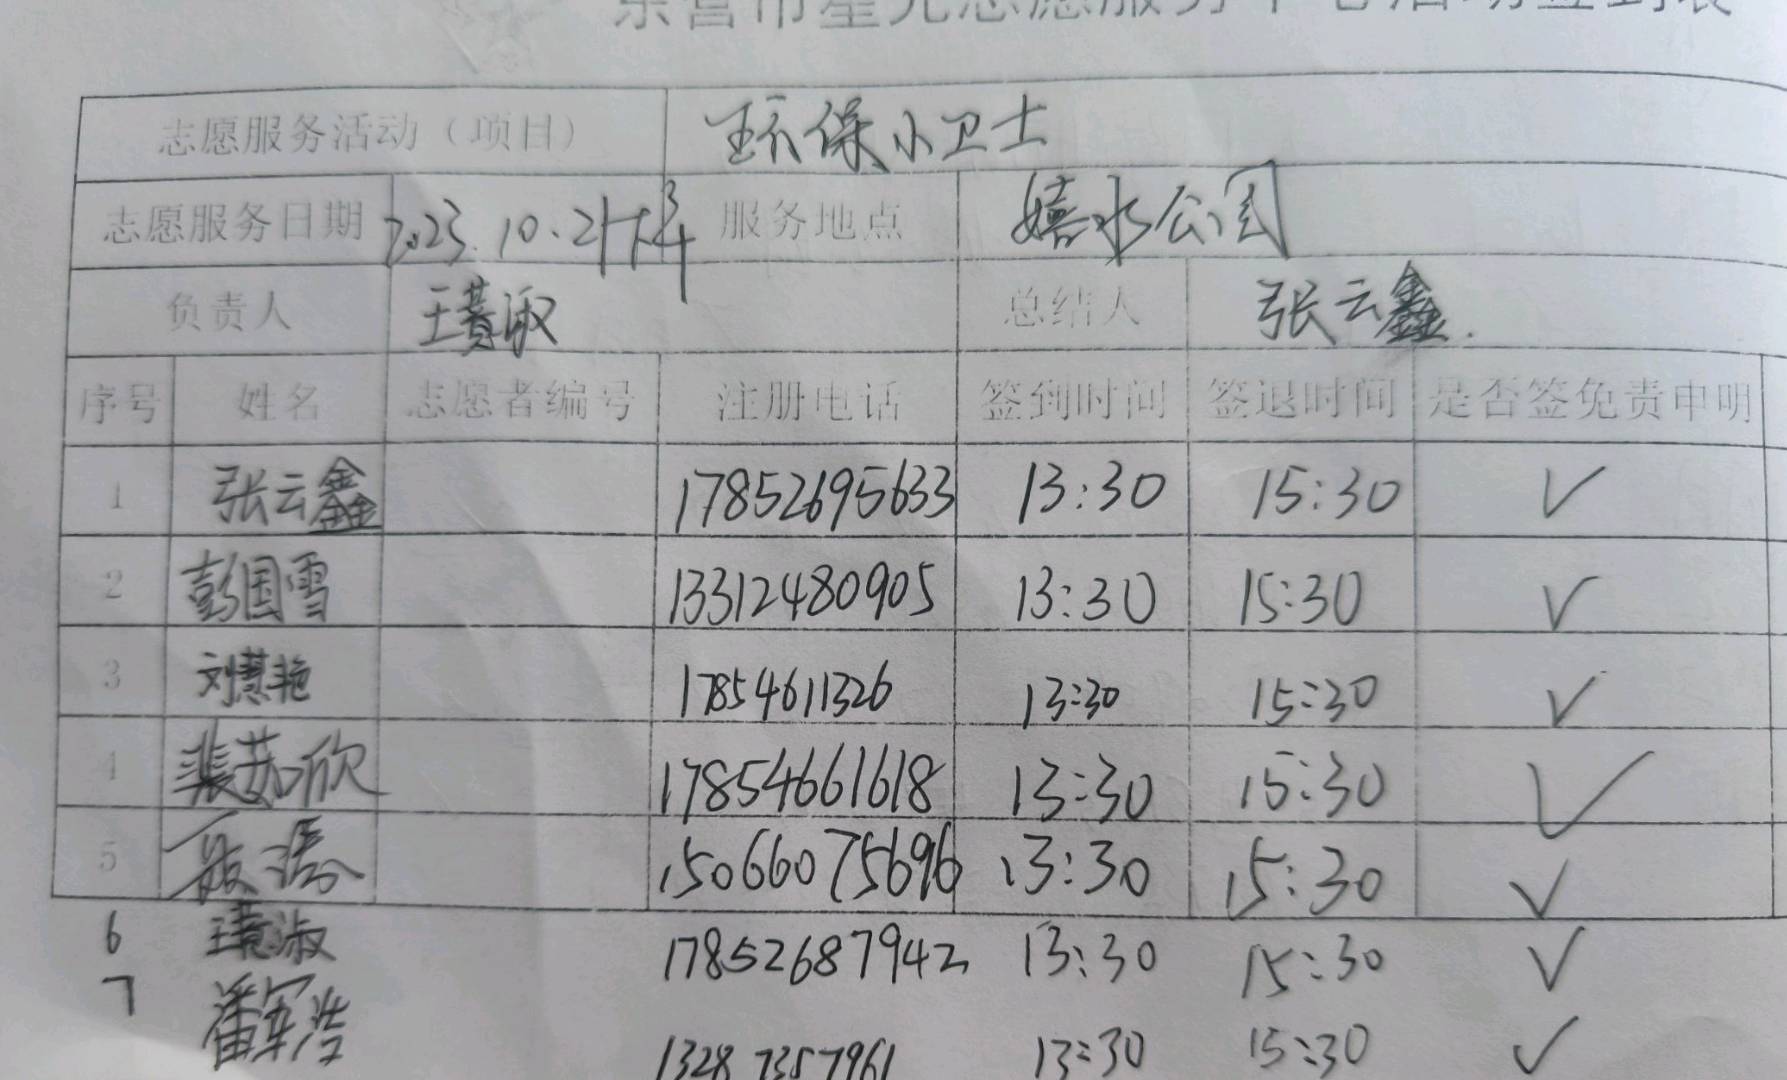 东营市星光志愿服务中心活动签到表
志愿服务活动（项目） 环保小卫士
志愿服务日期 2023.10.21 下午 服务地点 嬉水公园
负责人 王蕡淑 总结人 张云鑫.
序号 姓名 志愿者编号 注册电话 签到时间 签退时间 是否签免责申明
1 张云鑫 17852695633 13:30 15:30 ✓
2 彭国雪 13312480905 13:30 15:30 ✓
3 刘慧艳 17854611326 13:30 15:30 ✓
4 裴茹欣 17854661618 13:30 15:30 ✓
5 15066075696 13:30 15:30 ✓
6 淑 17852687942 13:30 15:30 ✓
7 潘军浩 13287357961 13:30 15:30 ✓